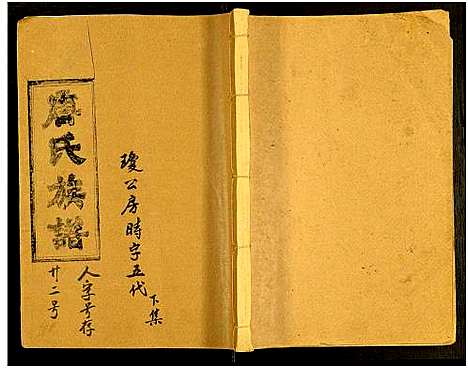 唐氏族譜
瓊公房時字五代
下集
人字号存
廿二号